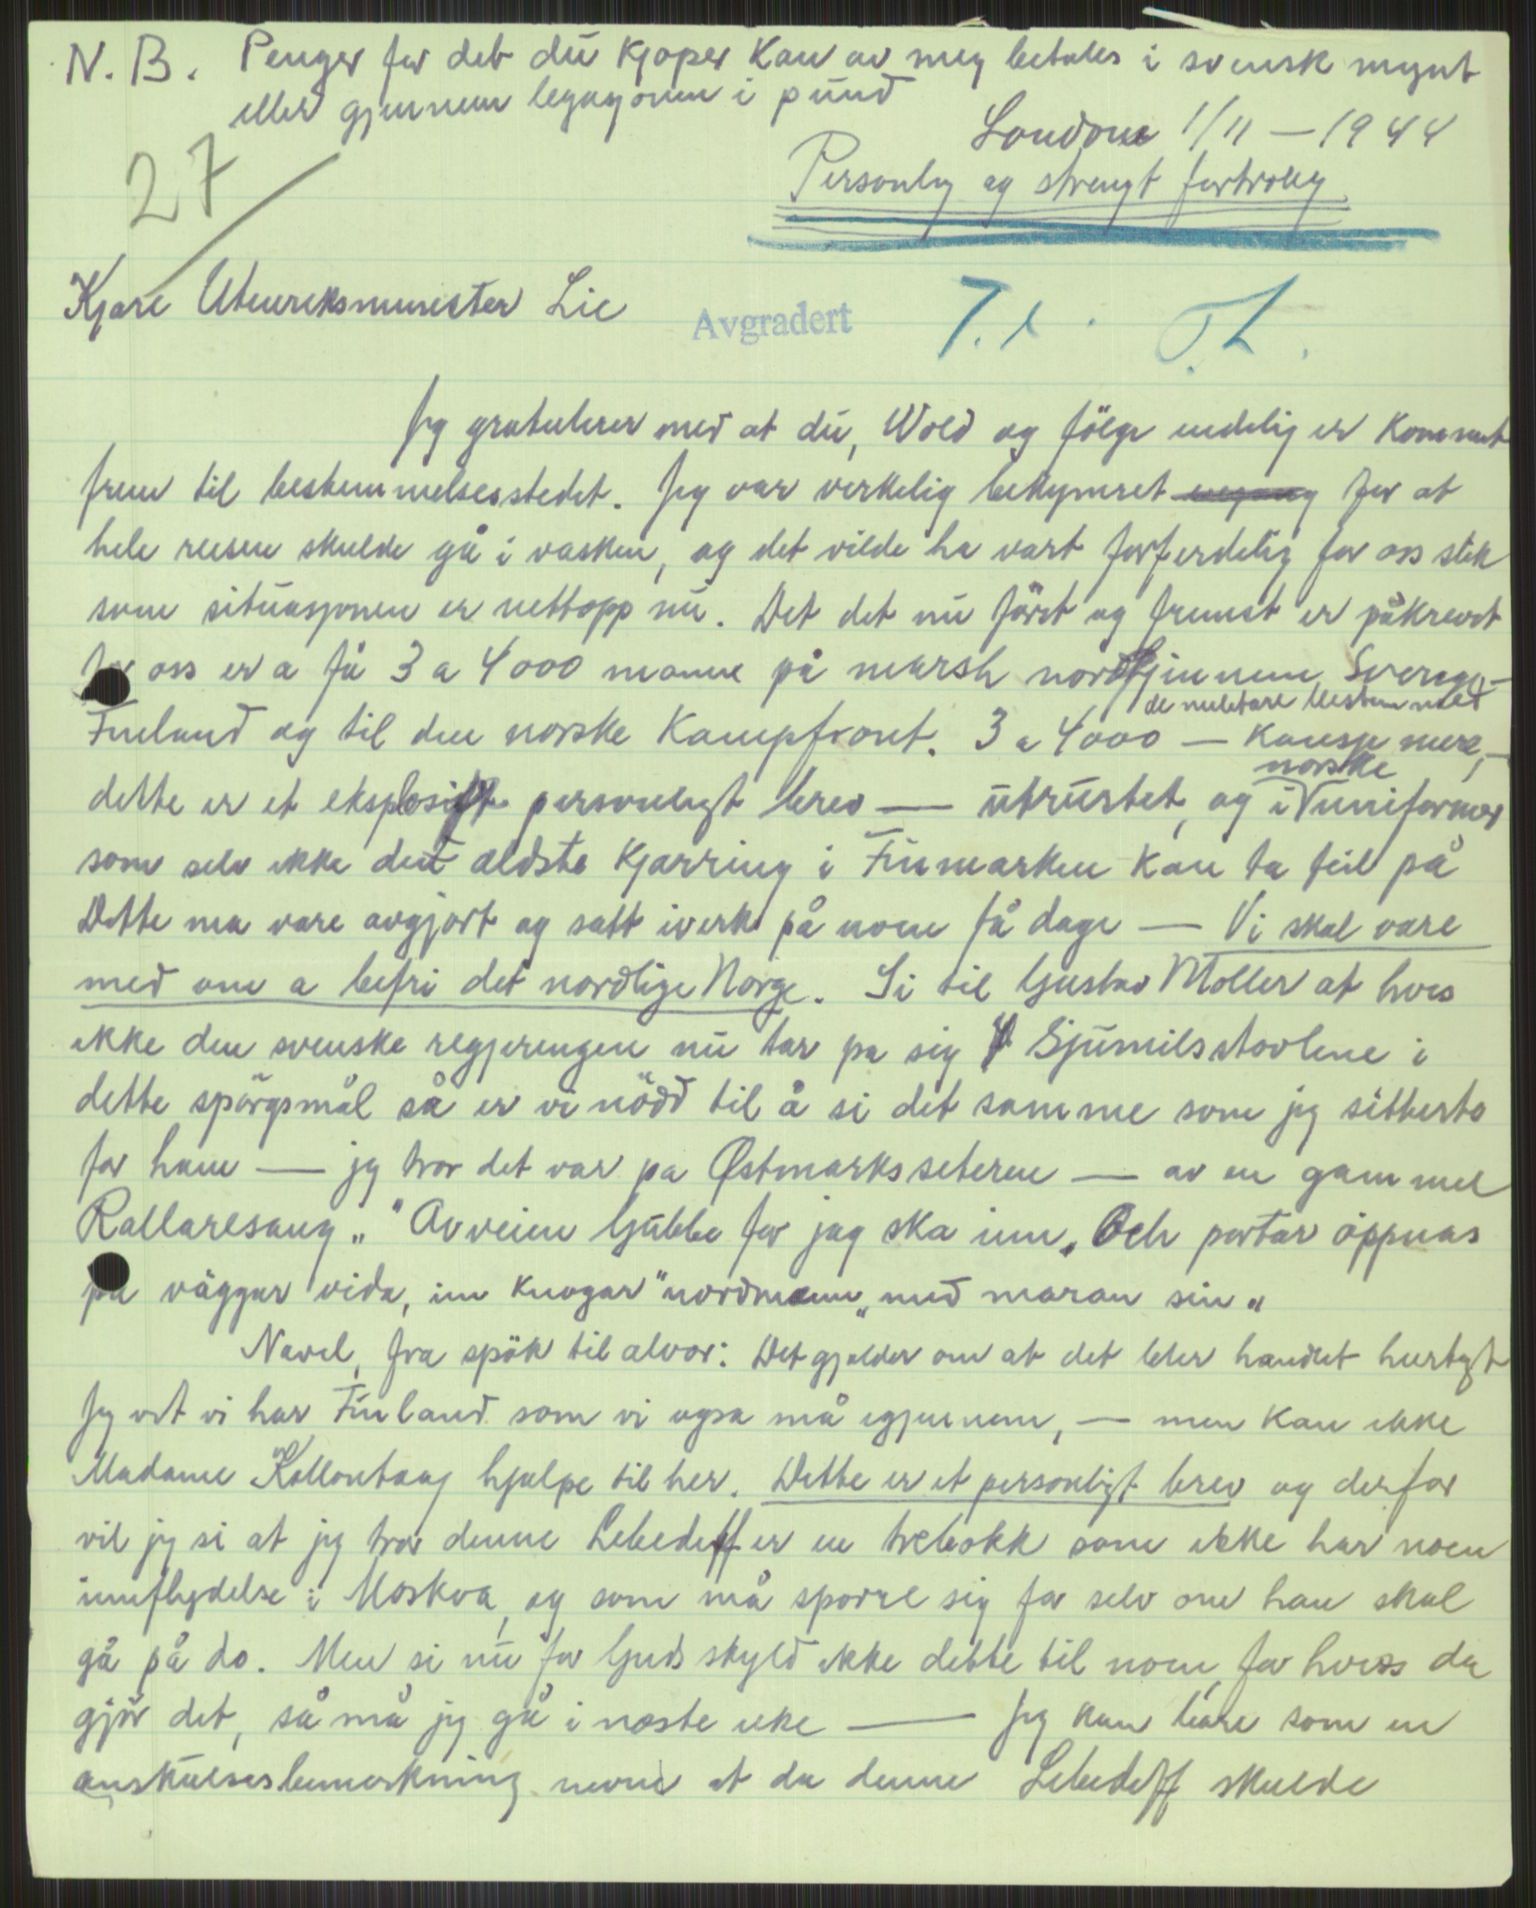 N.B. Penger for det du kjøper kan av meg betales i svensk mynt
eller gjennem legasjonen i pund
London 1/11 – 1944
Personlig og strengt fortrolig
27
Kjære Utenriksminister Lie
Avgradert
T.L.
Jeg gratulerer med at du, Wold og følge endelig er kommet
frem til bestemmelsesstedet. Jeg var virkelig bekymret for at
hele reisen skulde gå i vasken, og det vilde ha vært forferdelig for oss slik
som situasjonen er nettopp nu. Det det nu först og fremst er påkrevet
for oss er a få 3 a 4000 mann på marsh nord gjennem Sverige –
de militære bestemmes
Finland og til den norske Kampfront. 3 a 4000 — kansje mere, –
norske
dette er et eksplosift personligt brev — utrustet, og i uniformer
som selv ikke den ældste kjærring i Finmarken kan ta feil på
Dette ma være avgjort og satt iverk på noen få dage — Vi skal være
med om a befri det nordlige Norge. Si til Gustav Møller at hvis
ikke den svenske regjeringen nu tar pa sig Sjumilsstøvlene i
dette spörgsmål så er vi nödd til å si det samme som jeg siterte
for ham — jeg tror det var pa Østmarkssetren — av en gammel
Rallaresang „ "Av veien Gubbe for jag ska inn. Och portar öppnas
på väggar vida, inn knogar "nordmann" med maran sin"
Navel, fra spök til alvor: Det gjælder om at det blir handlet hurtigt
Jeg vet vi har Finland som vi ogsa må igjennem, — men kan ikke
Madame Kollontaay hjælpe til her. Dette er et personligt brev og derfor
vil jeg si at jeg tror denne Lebedeff er en trebokk som ikke har noen
innflydelse i Moskva, og som må spørre sig for selv om han skal
gå på do. Men si nu for Guds skyld ikke dette til noen, for hviss du
gjör det, så må jeg gå i næste uke — Jeg kan bare som en
anskuelsesbemerkning nevne at da denne Lebedeff skulde